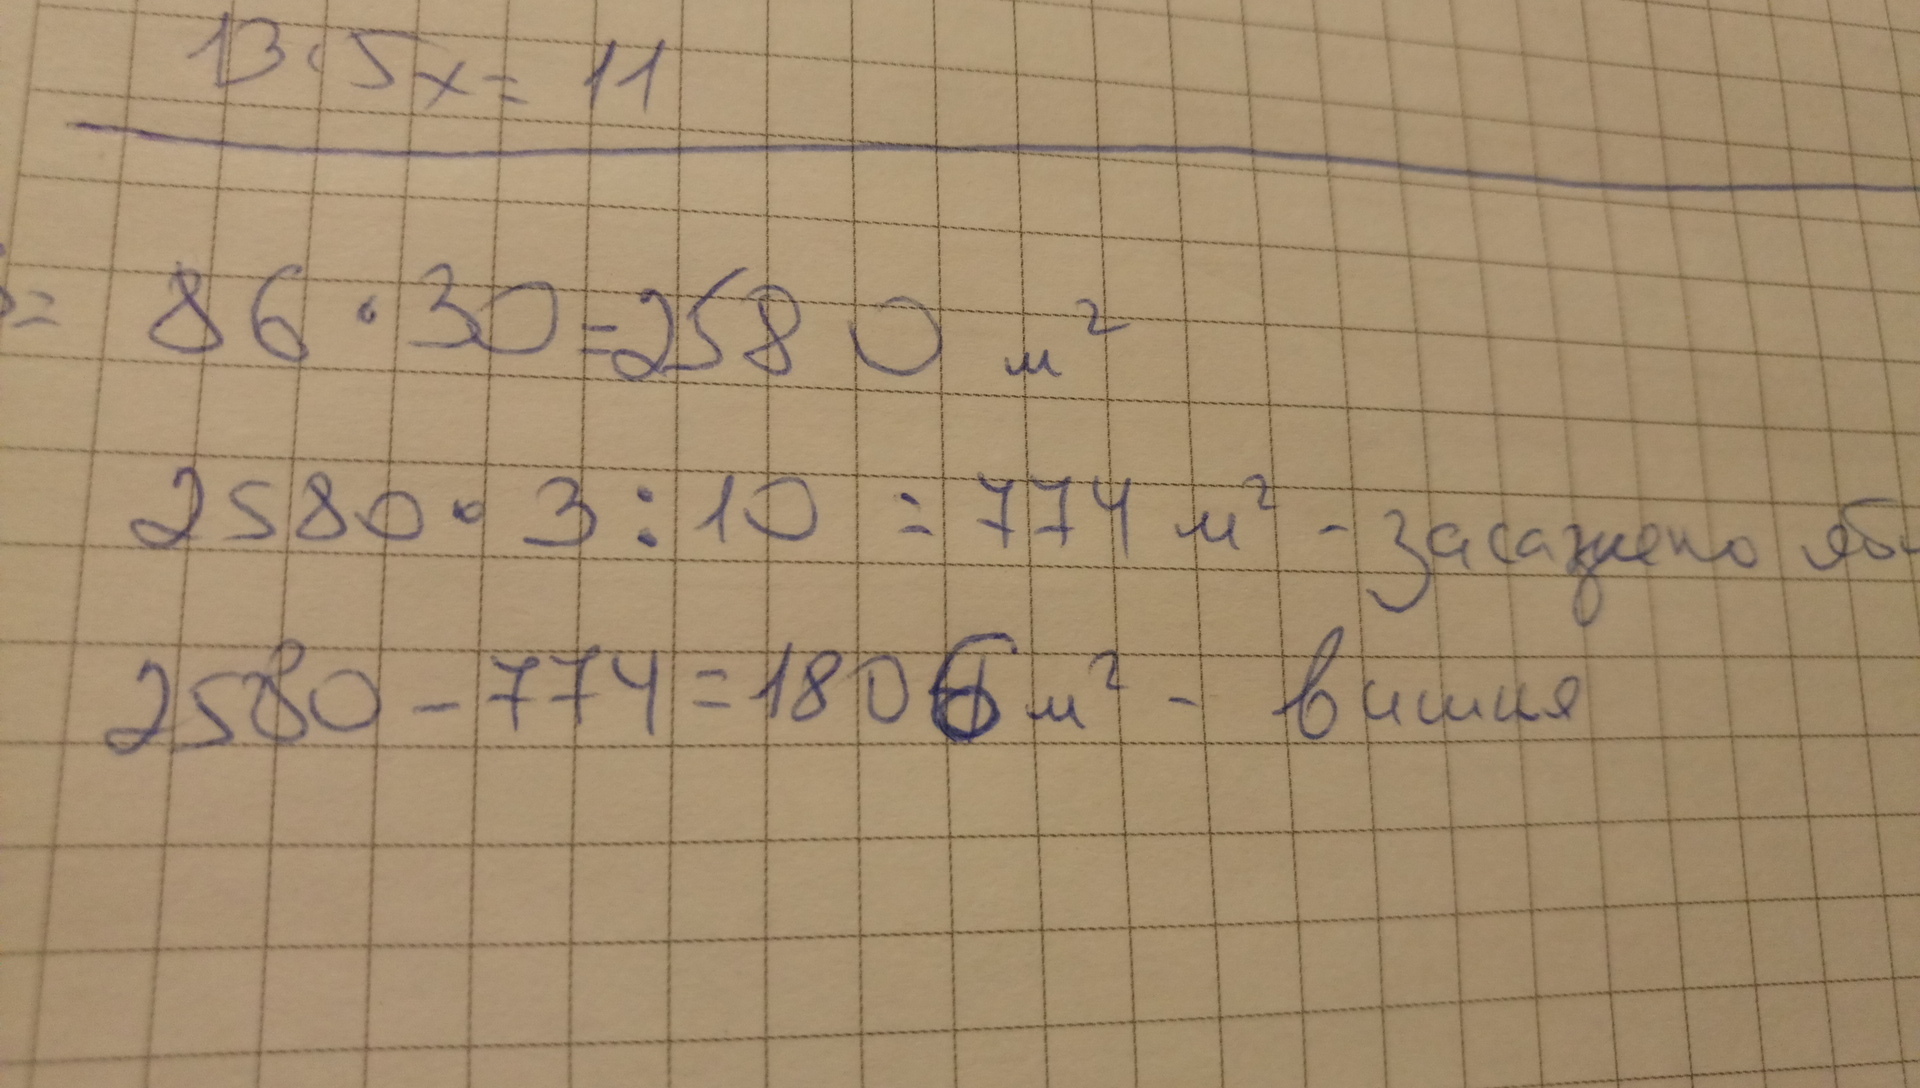 13·5x = 11
S = 86 · 30 = 2580 м²
2580 · 3 : 10 = 774 м² - засажено
2580 - 774 = 1806 м² - вишня